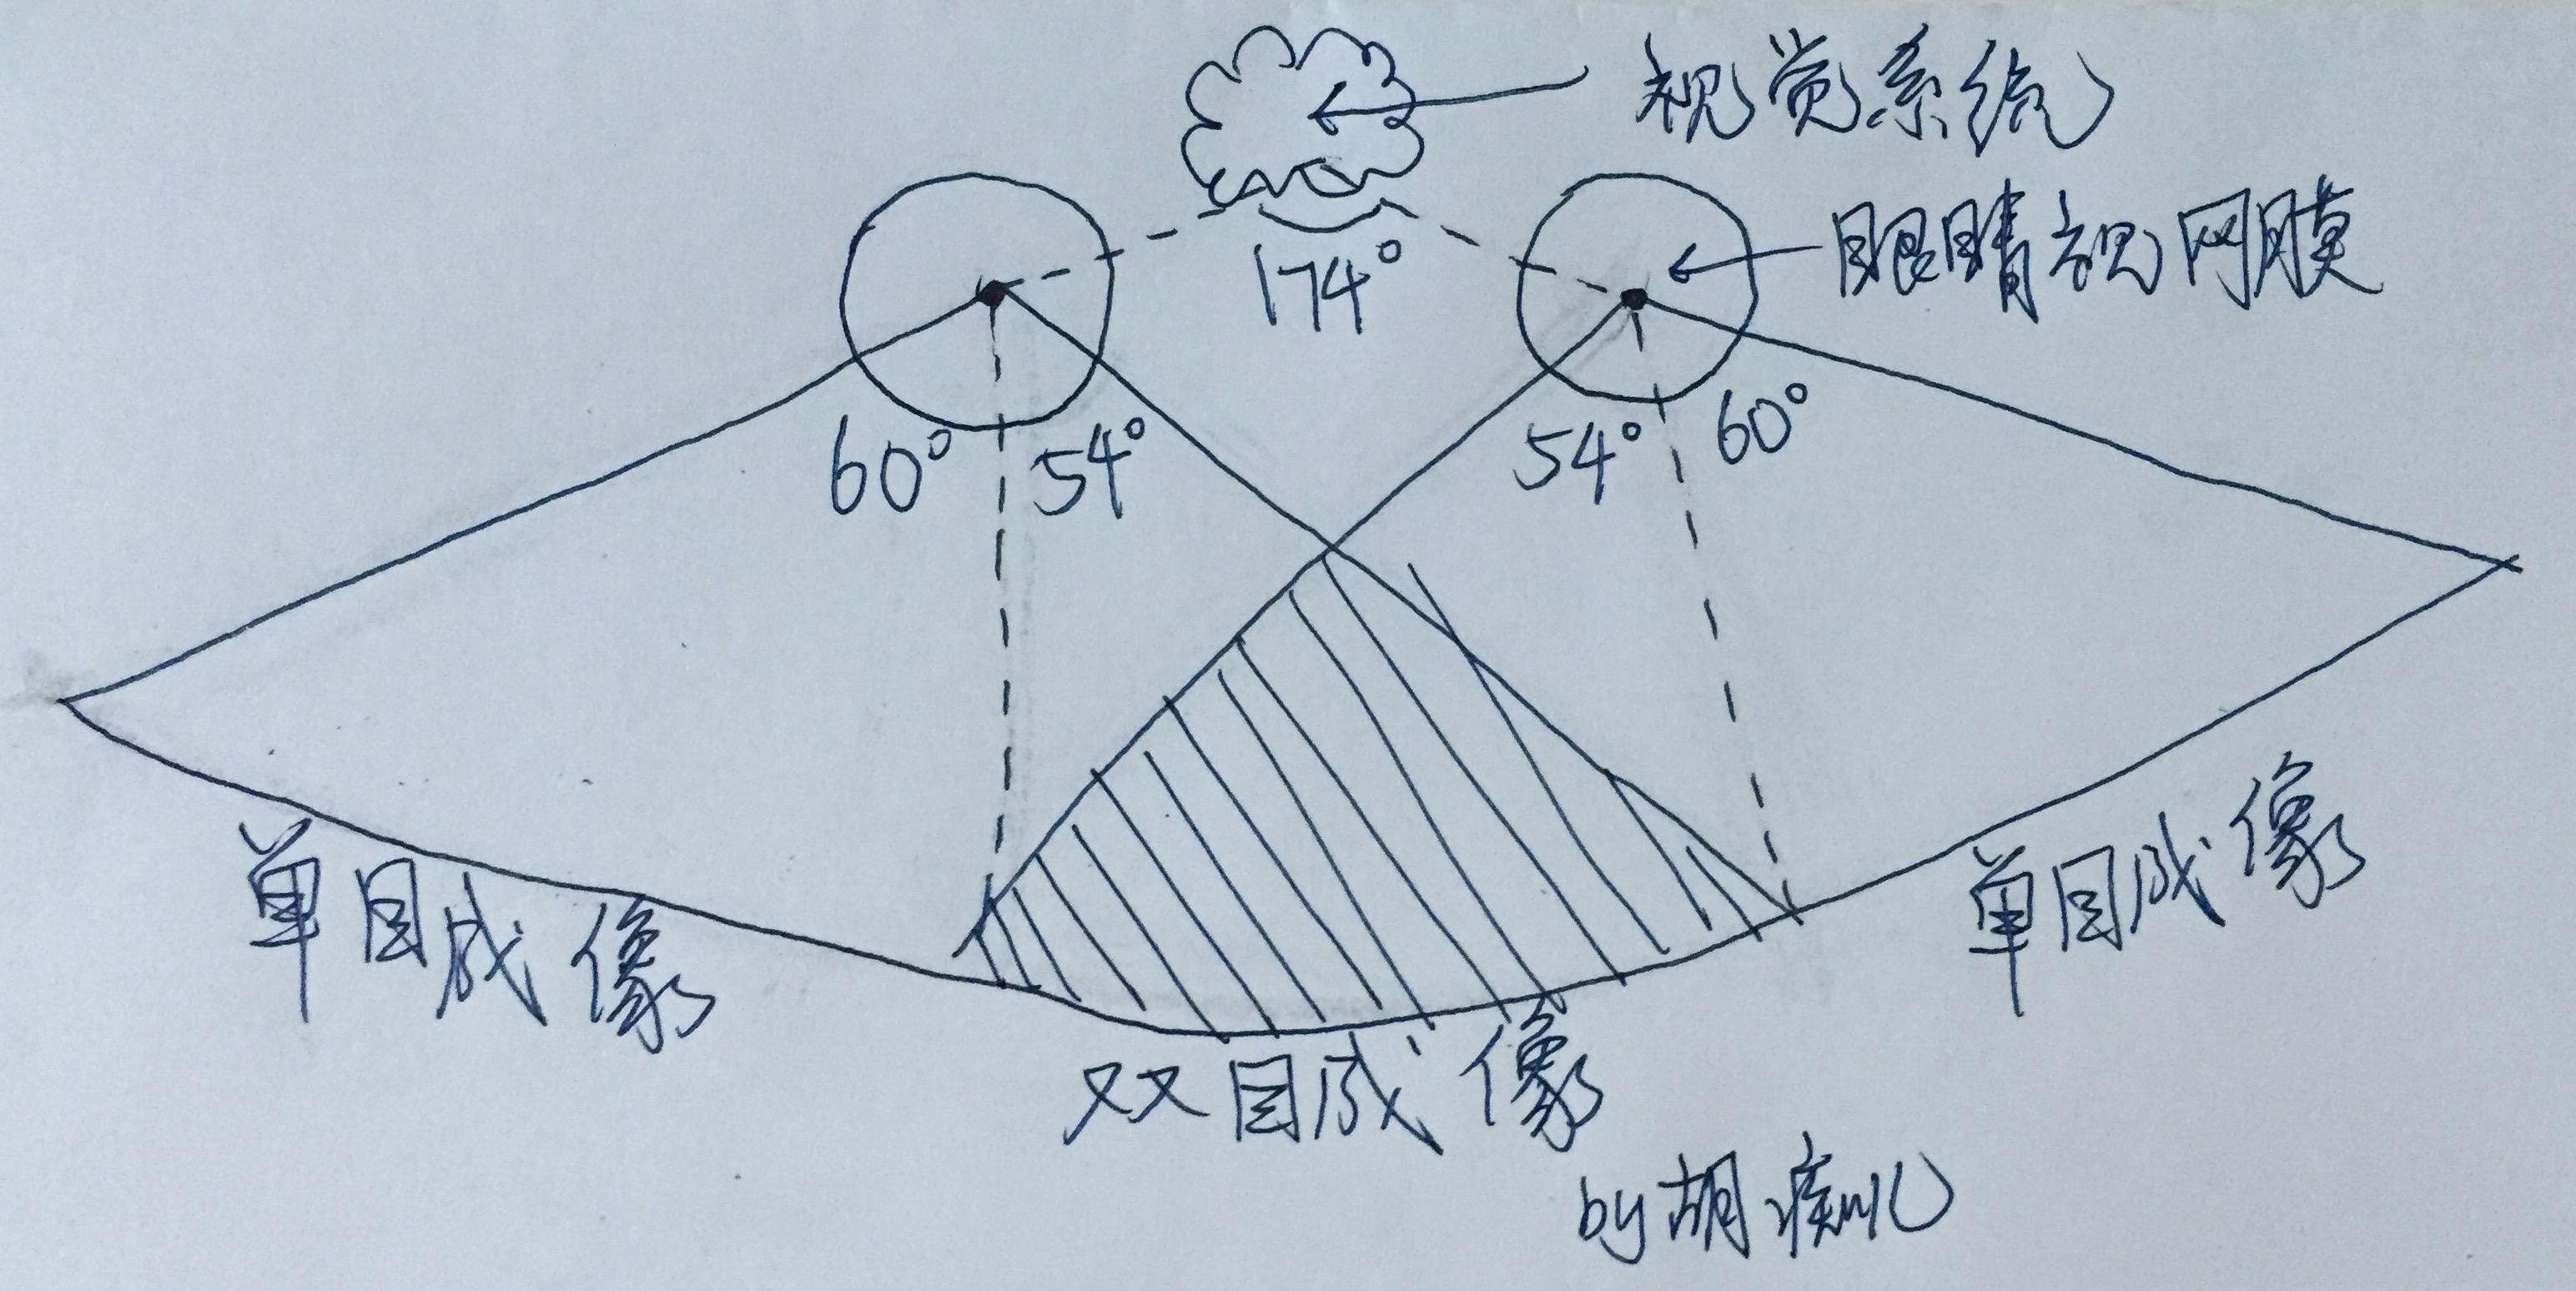 视觉系统
眼睛视网膜
174°
60° 54°
54° 60°
单目成像
单目成像
双目成像
by 胡痴儿